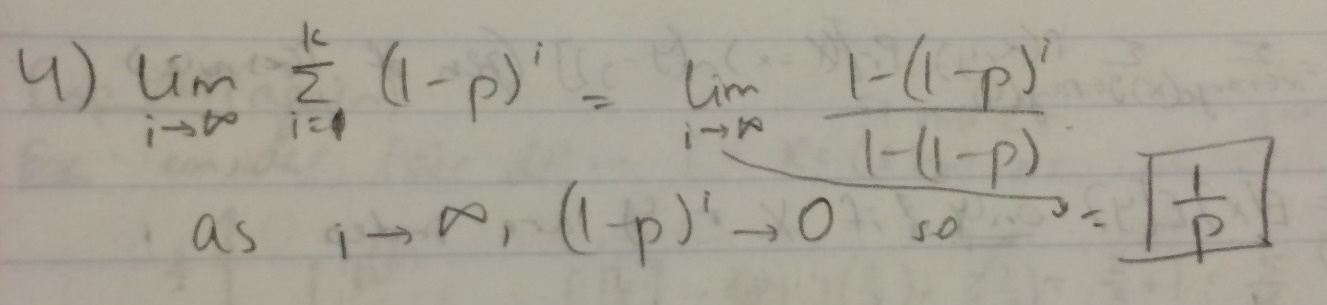 4) lim_{i→∞} Σ_{i=0}^{k} (1-p)^i = lim_{i→∞} \frac{1-(1-p)^i}{1-(1-p)}
as i→∞, (1-p)^i → 0 so = \boxed{\frac{1}{p}}